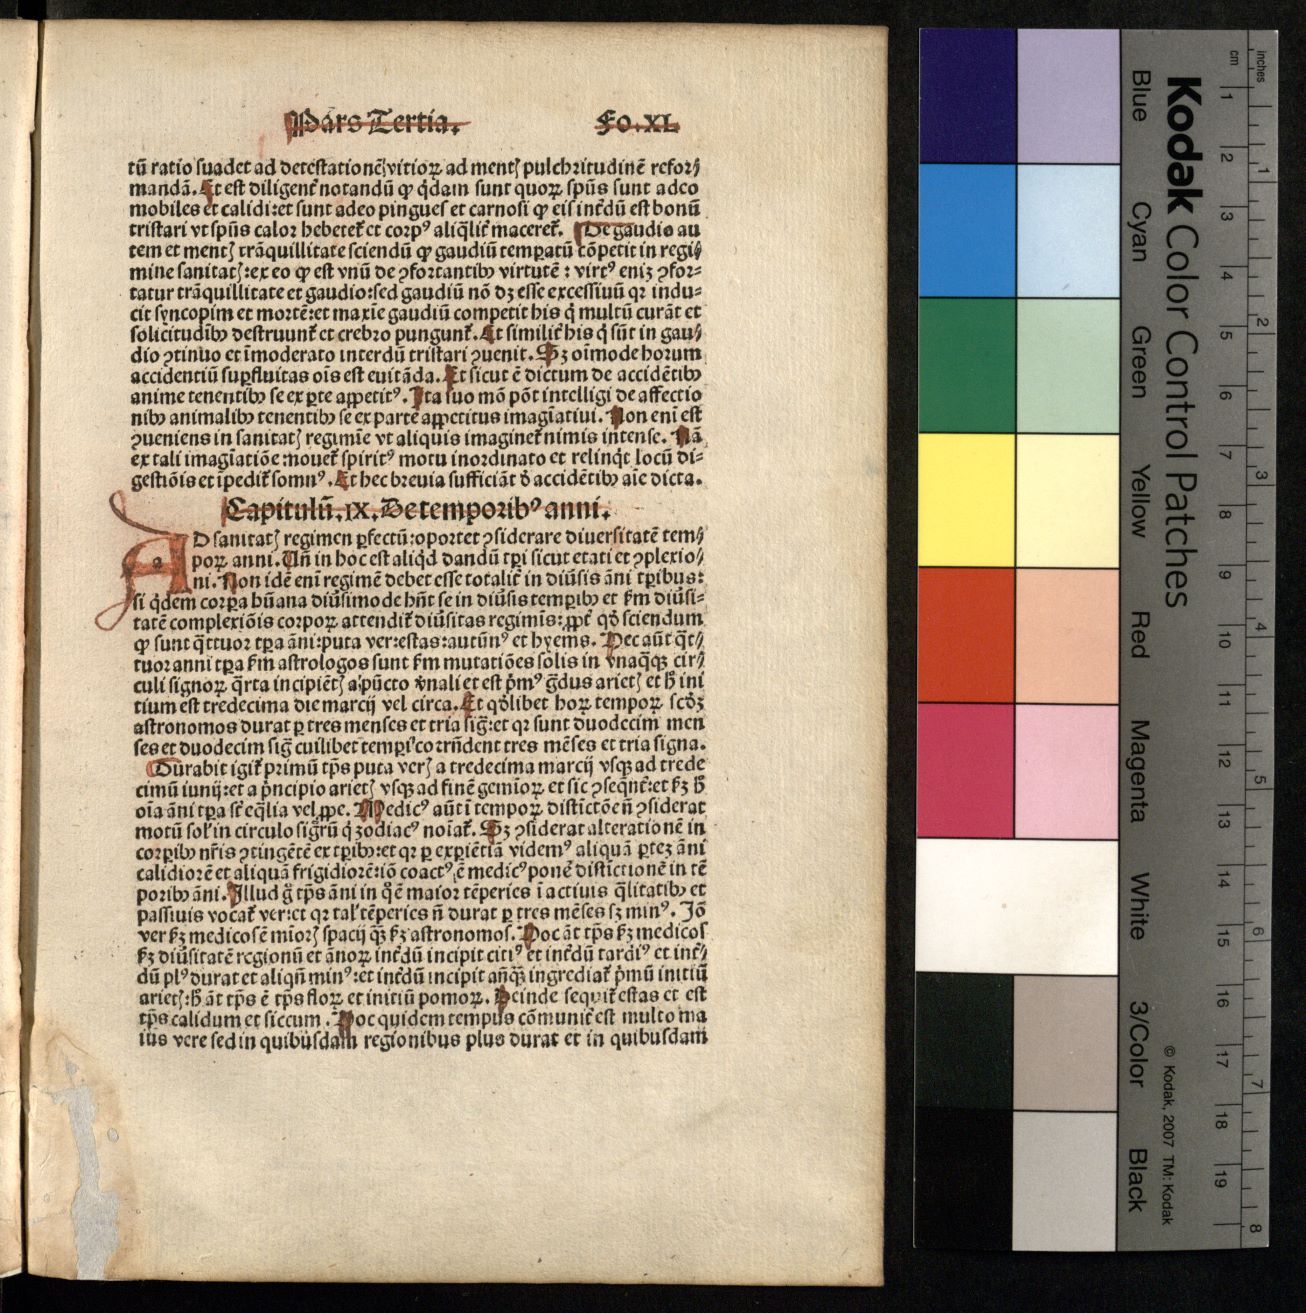 Pars Tertia. Fo. XL
tū ratio suadet ad detestationē vitioꝝ ad mentꝭ pulchritudinē refor⸗
mandā. Et est diligent᷑ notandū ꝙ q̇dam sunt quoꝝ spūs sunt adeo
mobiles et calidi: et sunt adeo pingues et carnosi ꝙ eis int᷑dū est bonū
tristari vt spūs calor hebetet᷑ et corpꝰ aliq̇lit᷑ maceret᷑. De gaudio au
tem et mentꝭ trāquillitate sciendū ꝙ gaudiū tempatū cōpetit in regi⸗
mine sanitatꝭ: ex eo ꝙ est vnū de ꝯfortantibꝰ virtutē: virtꝰ eniꝫ ꝯfor⸗
tatur trāquillitate et gaudio: sed gaudiū nō dꝫ esse excessiuū qꝛ indu⸗
cit syncopim et mortē: et maxīe gaudiū competit his q̇ multū curāt et
solicitudībꝰ destruunt᷑ et crebro pungunt᷑. Et similit᷑ his q̇ sūt in gau⸗
dio ꝯtinuo et īmoderato interdū tristari ꝯuenit. Sꝫ oīmode horum
accidentiū supfluitas oīs est euitāda. Et sicut ē dictum de accidētibꝰ
anime tenentibꝰ se ex pte appetitꝰ. Ita suo mō pōt intelligi de affectio
nibꝰ animalibꝰ tenentibꝰ se ex parte appetitus imagīatiui. Non enī est
ꝯueniens in sanitatꝭ regimīe vt aliquis imaginet᷑ nimis intense. Nā
ex tali imagīatiōe mouet᷑ spiritꝰ motu inordinato et relinq̇t locū di⸗
gestiōis et īpedit᷑ somnꝰ. Et hec breuia sufficiāt ď accidētibꝰ aīe dicta.
Capitulū. IX. De temporibꝰ anni.
AD sanitatꝭ regimen pfectū: oportet ꝯsiderare diuersitatē tem⸗
poꝝ anni. Uñ in hoc est aliqd dandū tpi sicut etati et ꝯplexio⸗
ni. Non idē enī regimē debet esse totalit᷑ in diūsis āni tpibus:
si q̇dem corpa hūana diūsimode hñt se in diūsis tempibꝰ et ẜm diūsi⸗
tatē complexiōis corpoꝝ attendit᷑ diūsitas regimīs: ꝓpt᷑ qď sciendum
ꝙ sunt q̄ttuor tpa āni: puta ver: estas: autūnꝰ et hyems. Hec aūt q̄t⸗
tuor anni tpa ẜm astrologos sunt ẜm mutatiōes solis in vnaq̄qꝫ cir⸗
culi signoꝝ q̄rta incipiētꝭ a pūcto v̇nali et est p̄mꝰ ḡdus arietꝭ et h̄ ini
tium est tredecima die marcij vel circa. Et qďlibet hoꝝ tempoꝝ scďꝫ
astronomos durat ꝑ tres menses et tria sig̃: et qꝛ sunt duodecim men
ses et duodecim sig̃ cuilibet tempi cotrñdent tres mēses et tria signa.
Durabit igit᷑ primū tp̄s puta verꝭ a tredecima marcij vsqꝫ ad trede
cimū iunij: et a p̄ncipio arietꝭ vsqꝫ ad finē gemioꝝ et sic ꝯseq̄nt᷑: et ẜꝫ h̄
oīa āni tpa st᷑ eq̄lia vel ꝓpe. Medicꝰ aūt ī tempoꝝ distīctōe ñ ꝯsiderat
motū sol' in circulo sig̃rū q̇ zodiacꝰ noīat᷑. Sꝫ ꝯsiderat alterationē in
corpibꝰ nr̄is ꝯtingētē ex tpibꝰ: et qꝛ ꝑ expiētiā videmꝰ aliquā pteꝫ āni
calidiorē et aliquā frigidiorē: iō coactꝰ ē medicꝰ ponē distīctionē in tē
poribꝰ āni. Illud g̊ tp̄s āni in q̊ ē maior tēperies ī actiuis q̄litatibꝰ et
passiuis vocat᷑ ver: et qꝛ tal' tēperies ñ durat ꝑ tres mēses sꝫ minꝰ. Iō
ver ẜꝫ medicos ē mīorꝭ spacij q̄ꝫ ẜꝫ astronomos. Hoc āt tp̄s ẜꝫ medicos
ẜꝫ diūsitatē regionū et ānoꝝ int᷑dū incipit citiꝰ et int᷑dū tardiꝰ et int᷑⸗
dū plꝰ durat et aliqñ minꝰ: et int᷑dū incipit añq̄ꝫ ingrediat᷑ p̄mū initiū
arietꝭ: h̄ āt tp̄s ē tp̄s floꝝ et initiū pomoꝝ. Deinde sequit᷑ estas et est
tp̄s calidum et siccum. Hoc quidem tempus cōmunit᷑ est multo ma
ius vere sed in quibusdam regionibus plus durat et in quibusdam
Kodak Color Control Patches
Blue Cyan Green Yellow Red Magenta White 3/Color Black
© Kodak, 2007 TM: Kodak
inches 1 2 3 4 5 6 7 8
cm 1 2 3 4 5 6 7 8 9 10 11 12 13 14 15 16 17 18 19